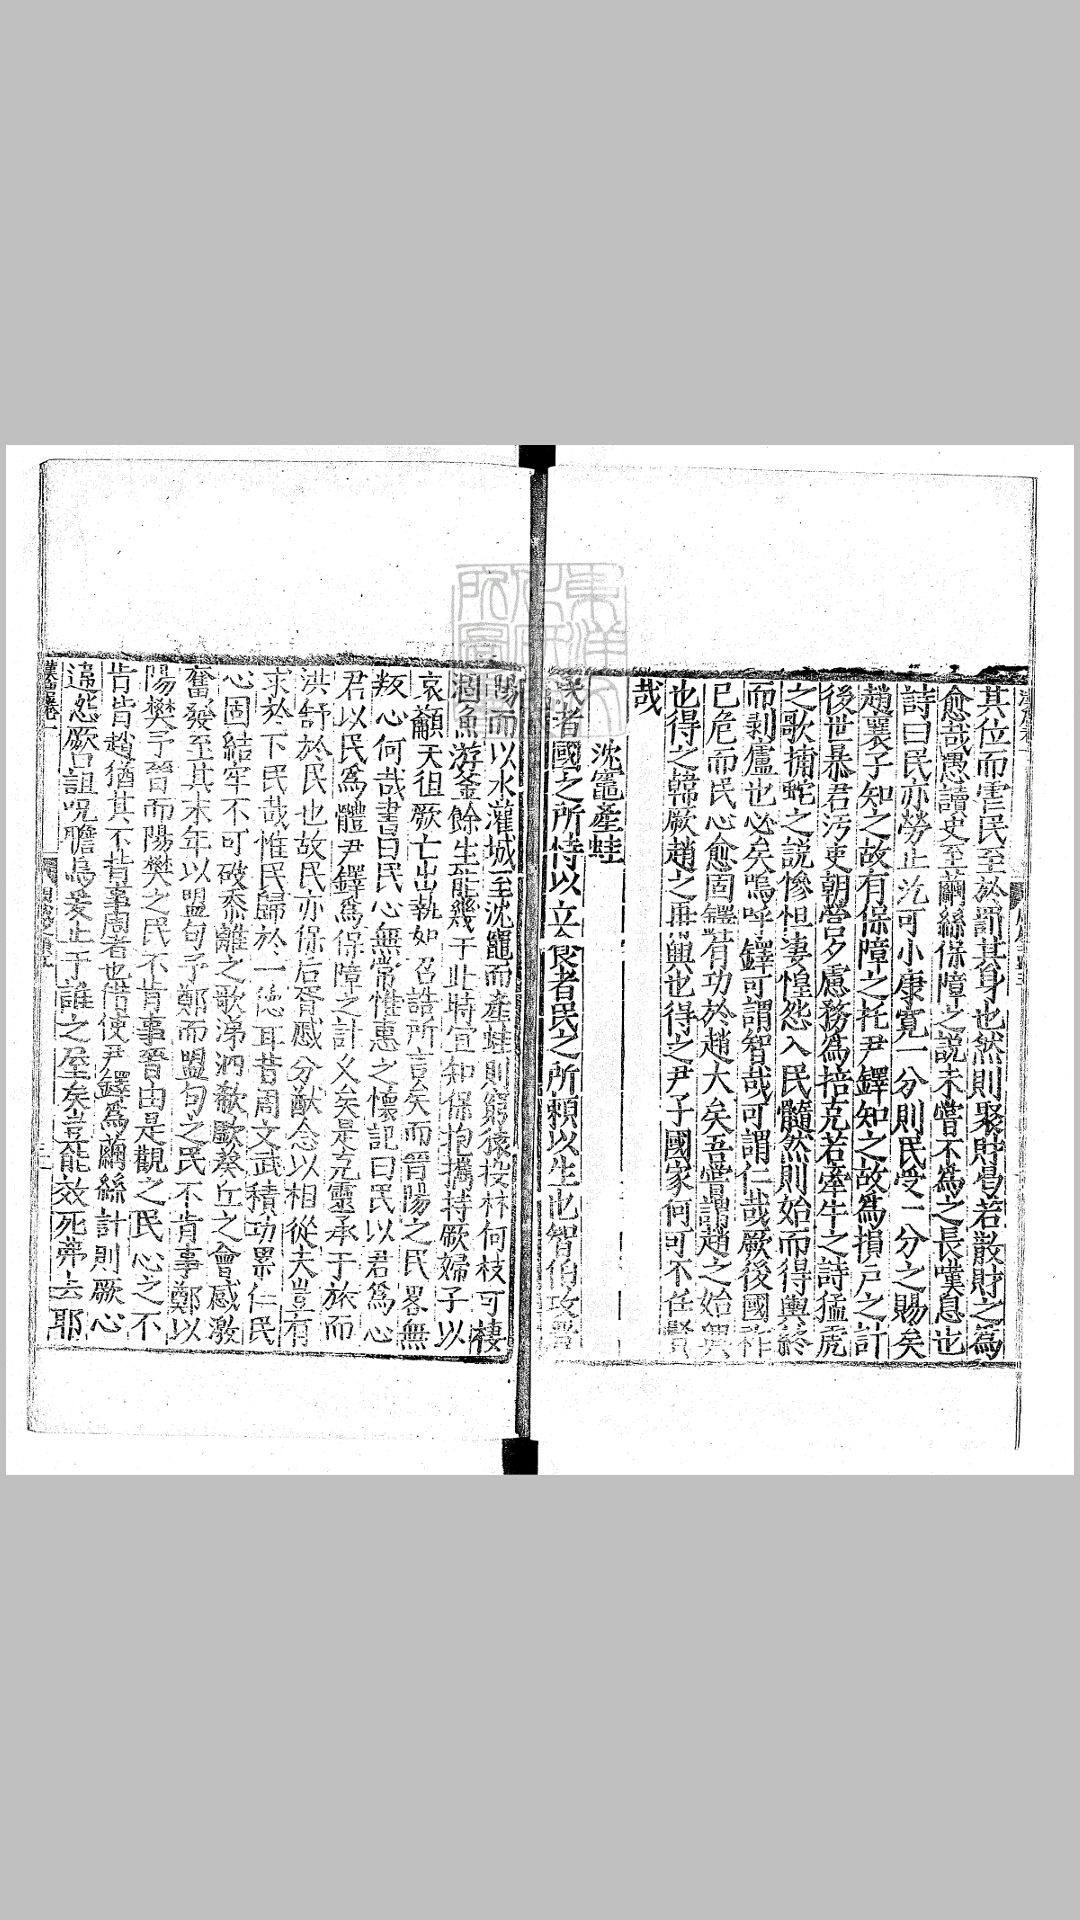 其位而害民至於罰其身也然則聚財曷若散財之爲
愈哉愚讀史至繭絲保障之說未嘗不爲之長嘆息也
詩曰民亦勞止汔可小康寬一分則民受一分之賜矣
趙襄子知之故有保障之托尹鐸知之故爲損戶之計
後世暴君汚吏朝營夕慮務爲掊克若牽牛之詩猛虎
之歌捕蛇之說慘怛凄惶怨入民髓然則始而得輿終
而剥廬也必矣嗚呼鐸可謂智哉可謂仁哉厥後國祚
已危而民心愈固鐸有功於趙大矣吾嘗謂趙之始興
也得之韓厥趙之再興也得之尹子國家何可不任賢
哉
沈竈產蛙
民者國之所恃以立食者民之所賴以生也智伯攻晋
陽而以水灌城至沈竈而產蛙則窮猿投林何枝可棲
涸魚游釜餘生能幾于此時宜知保抱攜持厥婦子以
哀籲天徂厥亡出執如召誥所言矣而晋陽之民畧無
叛心何哉書曰民心無常惟惠之懷記曰民以君爲心
君以民爲體尹鐸爲保障之計乂矣是克靈承于旅而
洪舒於民也故民亦保后胥慼分猷念以相從夫豈有
求於下民哉惟民歸於一德耳昔周文武積功累仁民
心固結牢不可破黍離之歌涕泗欷歔葵丘之會感激
奮發至其末年以盟句予鄭而盟句之民不肯事鄭以
陽樊予晉而陽樊之民不肯事晉由是觀之民心之不
肯背趙猶其不肯事周者也借使尹鐸爲繭絲計則厥心
違怨厥口詛呪瞻烏爰止于誰之屋矣豈能效死弗去耶